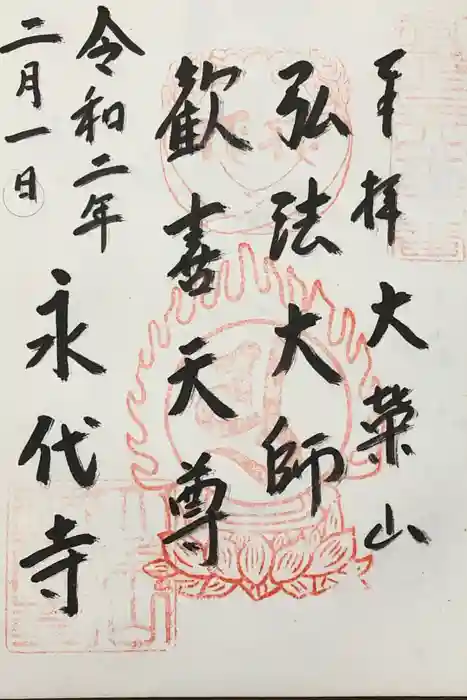 奉拝 大榮山
弘法大師
歓喜天尊
令和二年
二月一日
永代寺